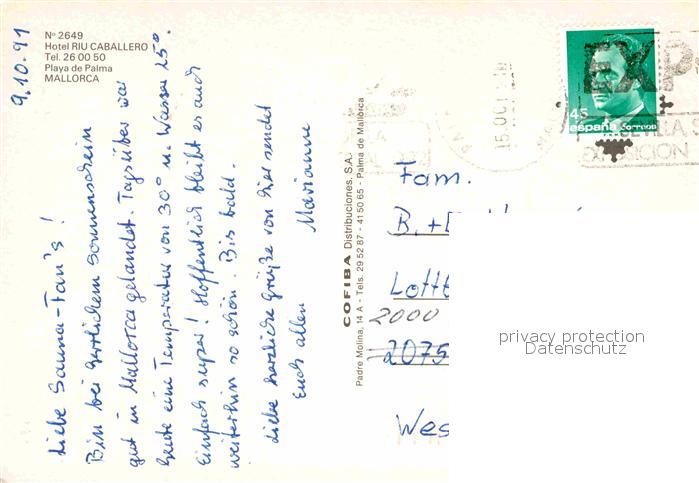 Nº 2649
Hotel RIU CABALLERO
Tel. 26 00 50
Playa de Palma
MALLORCA
9.10.91
Liebe Sauna-Fan's!
Bin bei herrlichem Sonnenschein
gut in Mallorca gelandet. Tagsüber war
heute eine Temperatur von 30° u. Wasser 25°.
Einfach super! Hoffentlich bleibt es auch
weiterhin so schön. Bis bald.
Liebe herzliche Grüße von hier sendet
Euch allen
Marianne
COFIBA Distribuciones, S.A.
Padre Molina, 14 A - Tels. 29 52 87 - 41 50 65 - Palma de Mallorca
45
españa correos
15 OCT
EXPO
SEVILLA
EXPOSICION
Fam.
B. +
Lott
2000
2075
Wes
privacy protection
Datenschutz